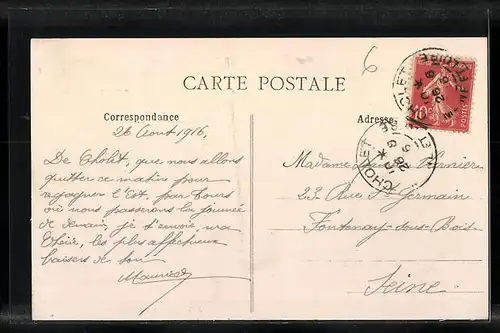 CARTE POSTALE
Correspondance
26 Aout 1916,
De Cholet, que nous allons
quitter ce matin pour
regagner l'Est, par Tours
où nous passerons la journée
de demain, je t'envoie, ma
Chérie, les plus affectueux
baisers de ton
Maurice
6
Adresse
Madame Vernier
23, Rue St Germain
Fontenay-sous-Bois
Seine
CHOLET
MAINE ET LOIRE
10c
POSTES
CHOLET